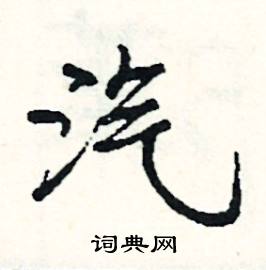 汽
词典网